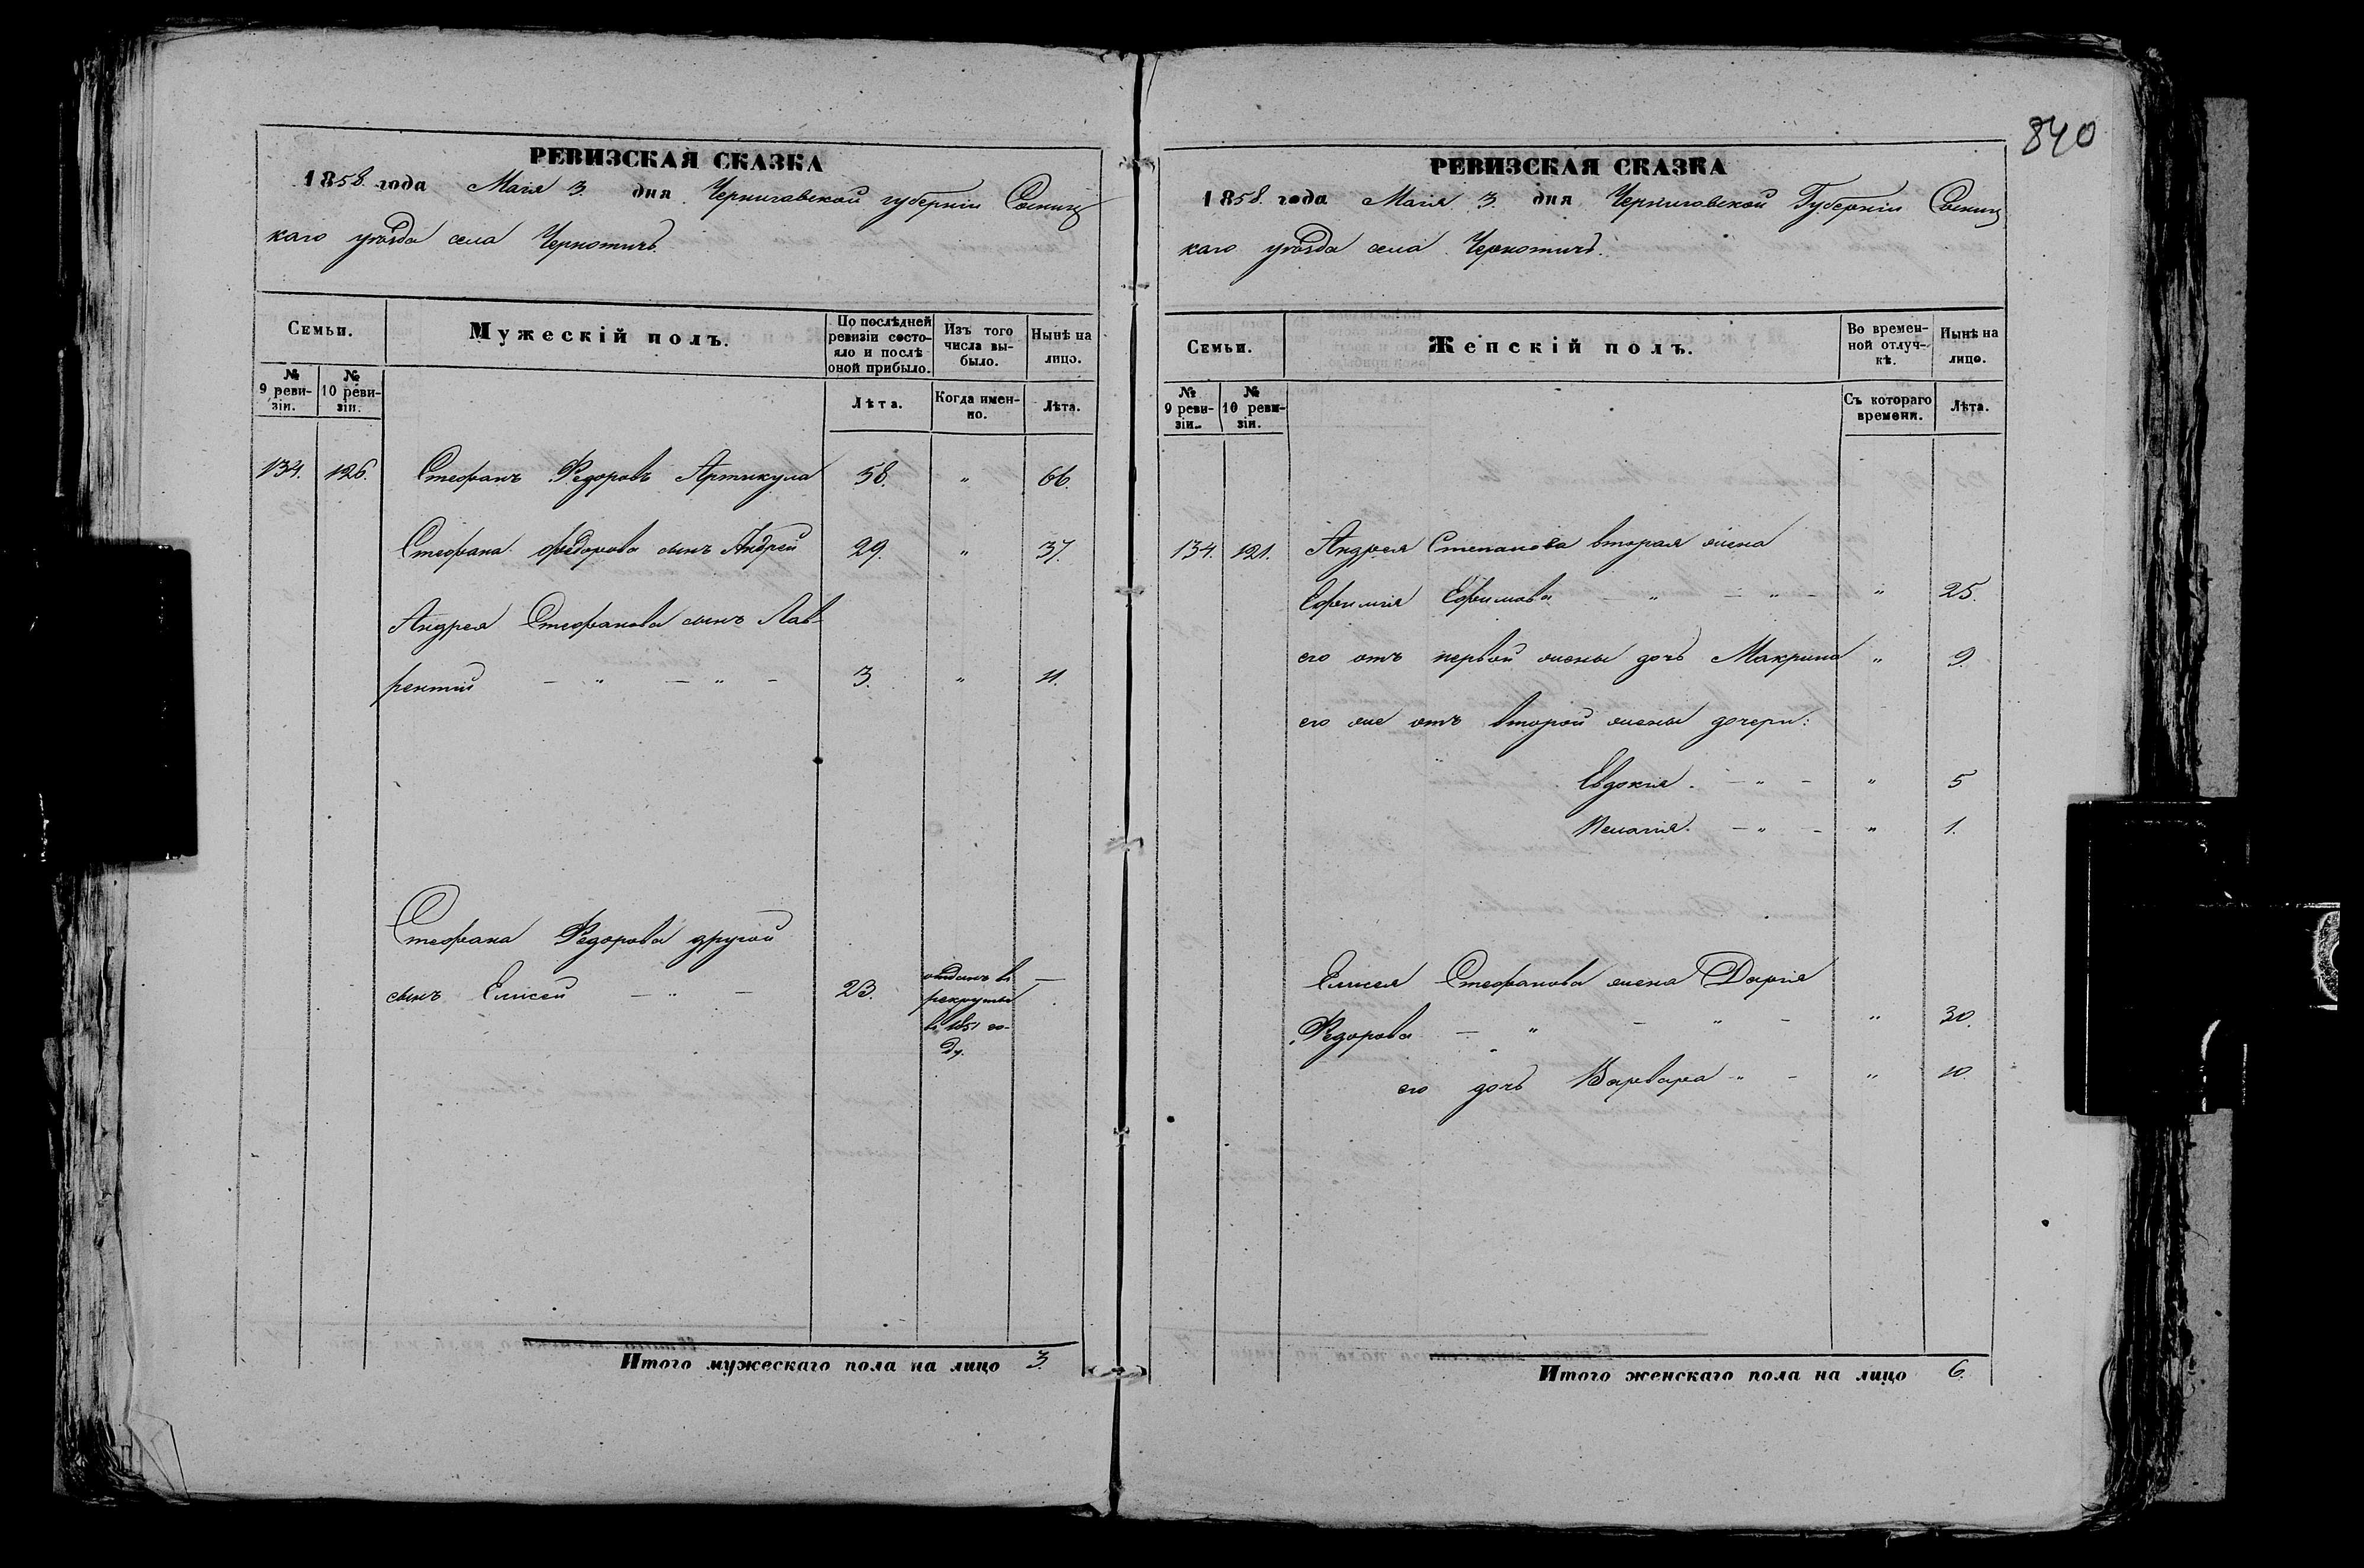 840
РЕВИЗСКАЯ СКАЗКА
1858. года Маія 3. дня Черниговской губерніи Сосниц
каго уѣзда села Чернотичъ.
Семьи.
Мужескій полъ.
По послѣдней
ревизіи состо-
яло и послѣ
оной прибыло.
Изъ того
числа вы-
было.
Нынѣ на
лицо.
№
9 реви-
зіи.
№
10 реви-
зіи.
Лѣта.
Когда имен-
но.
Лѣта.
134. 126. Стефанъ Федоровъ Артикула 58. " 66.
Стефана Федорова сынъ Андрей 29. " 37.
Андрея Стефанова сынъ Лав-
рентій — " — " — 3. " 11.
Стефана Федорова другой
сынъ Елисей — " — 23. —
отданъ въ
рекруты
въ 1851 го-
ду.
Итого мужескаго пола на лицо 3.
РЕВИЗСКАЯ СКАЗКА
1858. года Маія 3. дня Черниговской Губерніи Сосниц
каго уѣзда села Чернотичъ.
Семьи.
Женскій полъ.
Во времен-
ной отлуч-
кѣ.
Нынѣ на
лицо.
№
9 реви-
зіи.
№
10 реви-
зіи.
Съ котораго
времени.
Лѣта.
134. 121. Андрея Степанова вторая жена
Ефимія Ефимова — " — " — " 25.
его отъ первой жены дочь Макрина " 9.
его же отъ второй жены дочери:
Евдокія. — " — " 5
Пелагія. — " — " 1.
Елисея Стефанова жена Дарія
Федорова — " — " — " 30.
его дочь Варвара " — " 10.
Итого женскаго пола на лицо 6.